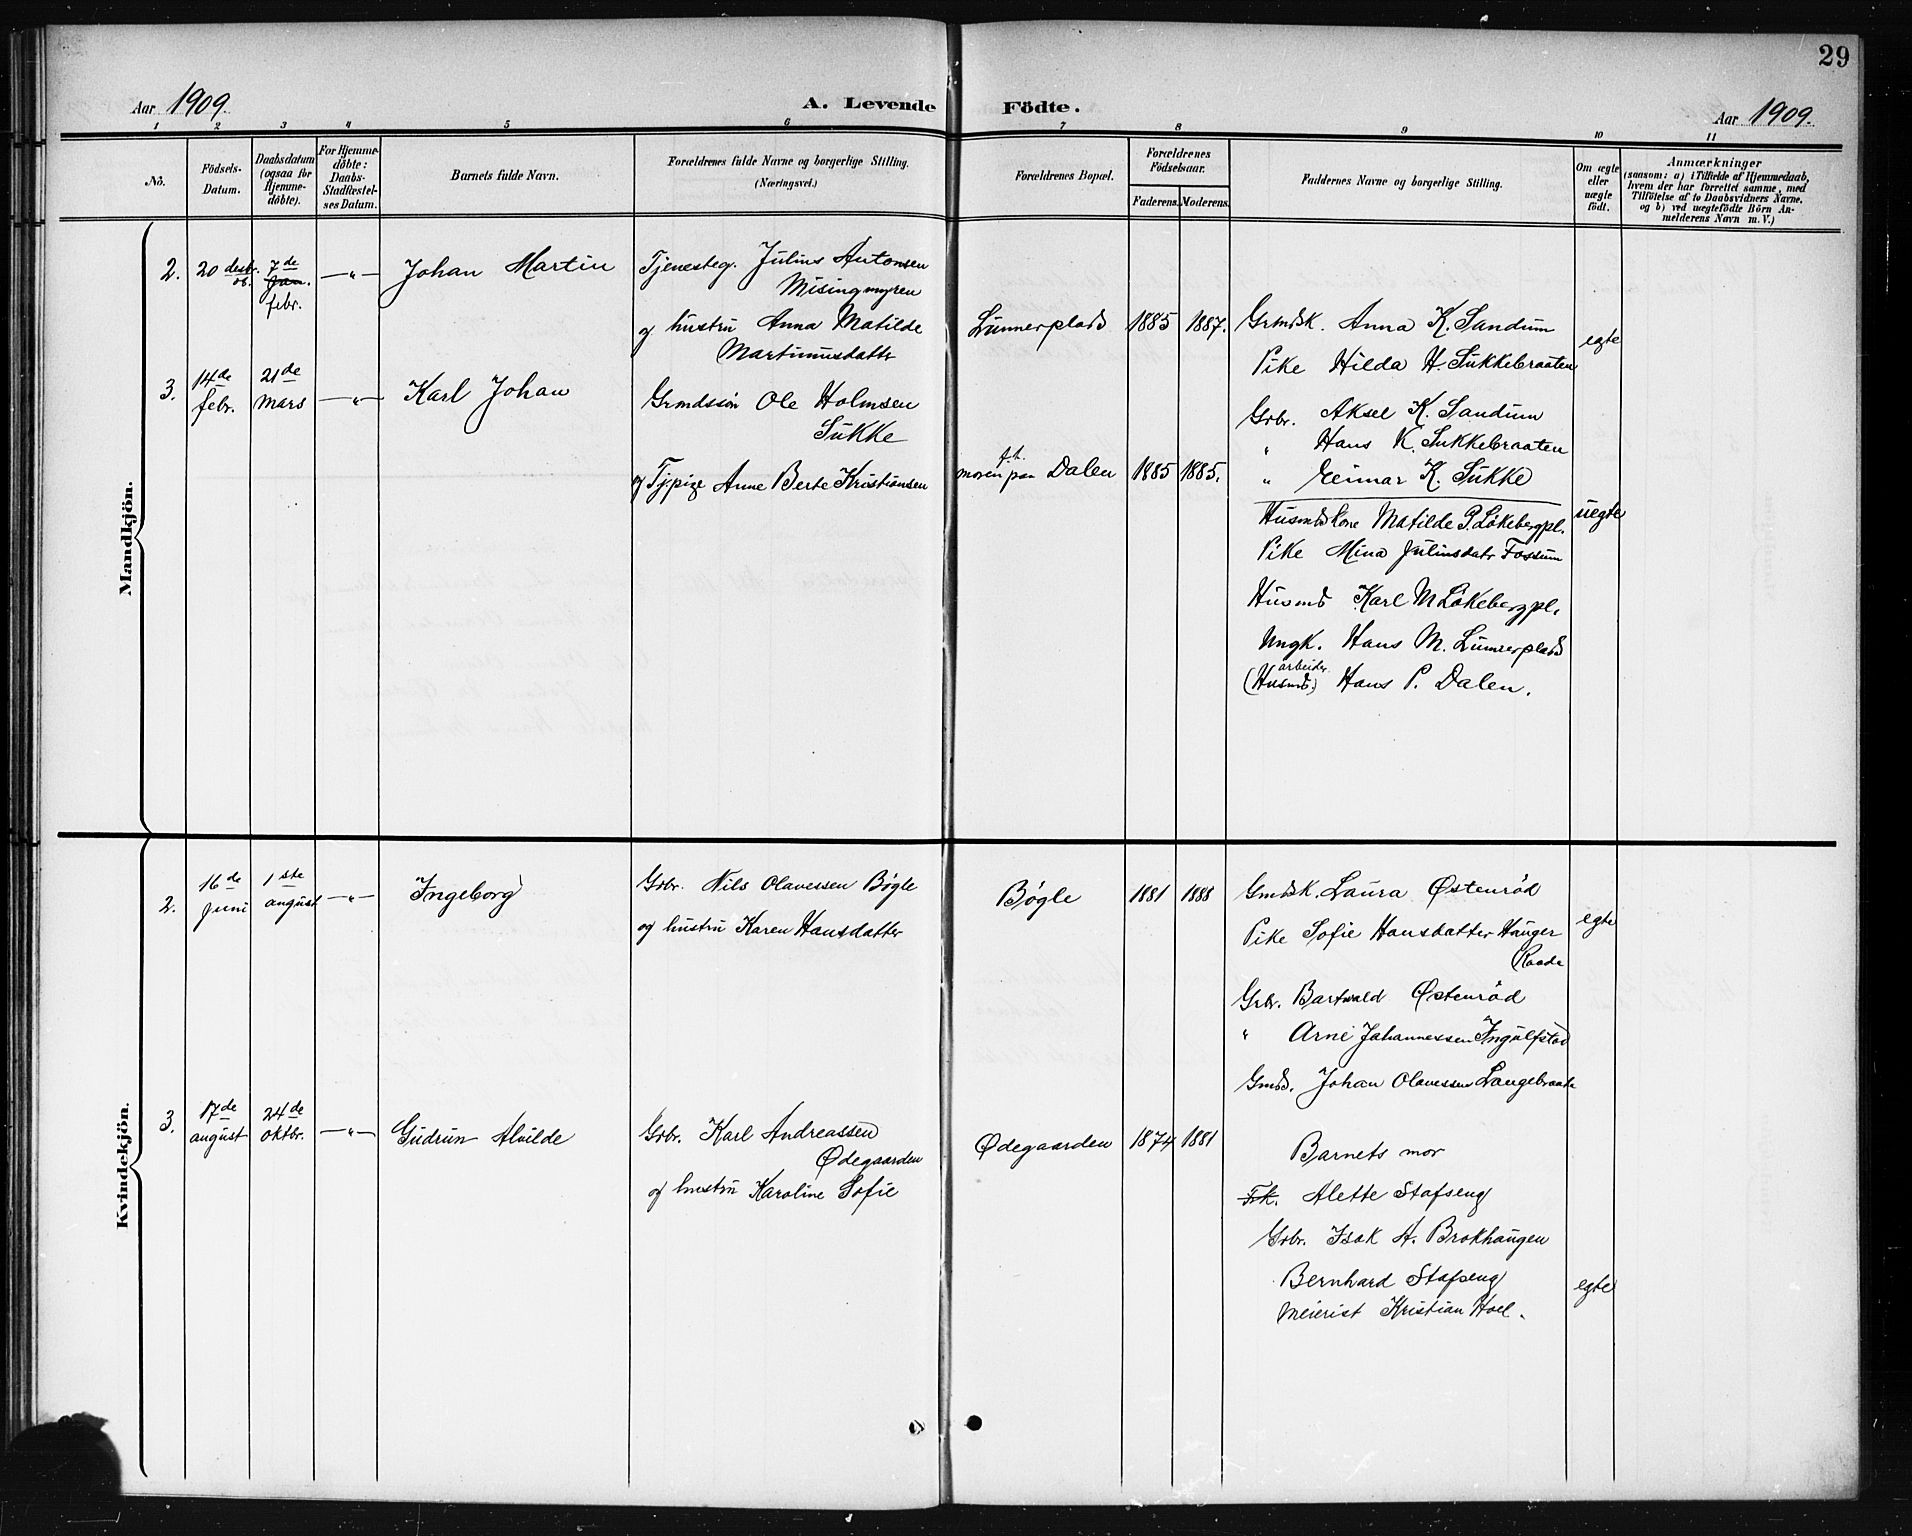 29
Aar 1909.
A. Levende Födte.
Aar 1909.
1 2 3 4 5 6 7 8 9 10 11
No.
Födsels-Datum.
Daabsdatum (ogsaa för Hjemme-döbte).
For Hjemme-döbte: Daabs-Stadfæstel-ses Datum.
Barnets fulde Navn.
Forældrenes fulde Navne og borgerlige Stilling.
(Næringsvei.)
Forældrenes Bopæl.
Forældrenes Födselsaar.
Faderens. Moderens.
Faddernes Navne og borgerlige Stilling.
Om ægte eller uægte födt.
Anmærkninger
(saasom: a) i Tilfælde af Hjemmedaab,
hvem der har forrettet samme, med
Tilföielse af to Daabsvidners Navne.
og b) ved uægtefödte Börn An-
melderens Navn m. V.)
Mandkjön.
2. 20 desbr. 08. 7de Jan. febr. —"— Johan Martin
Tjenesteg. Julius Antonsen
Misingmyren
og hustru Anna Matilde
Martinusdattr
Lunnerplads 1885 1887.
Grmdsk. Anna K. Sandum
Pike Hilda H. Sukkebraaten
Grbr. Aksel K. Sandum
" Hans K. Sukkebraaten
" Einar K. Sukke
egte
3. 14de febr. 21de mars —"— Karl Johan
Grmdssön Ole Holmsen
Sukke
og Tj.pige Anne Berte Kristiansen
f.t.
moren paa Dalen 1885 1885.
Husmdskone Matilde P. Lökebergpl.
Pike Mina Juliusdatr Fossum
Husmd Karl M Lökebergpl.
Ungk. Hans M. Lunnerplads
arbeider
(Husmd.) Hans P. Dalen.
uegte
Kvindekjön.
2. 16de juni 1ste august —"— Ingeborg
Grbr. Nils Olavessen Bøgle
og hustru Karen Hansdatter
Bøgle 1881 1888
Gmdsk. Laura Østenröd
Pike Sofie Hansdatter Hauger
Raade
Grbr. Bartvald Østenröd
" Arne Johannessen Ingulfstad
Gmbd. Johan Olavessen Langebraate
egte
3. 17de august 24de oktbr. —"— Gudrun Alvilde
Grbr. Karl Andreassen
Ødegaarden
og hustru Karoline Sofie
Ødegaarden 1874 1881
Barnets mor
Frk. Alette Stafseng
Grbr. Isak A. Brokhaugen
Bernhard Stafseng
Meierist Kristian Hoel.
egte